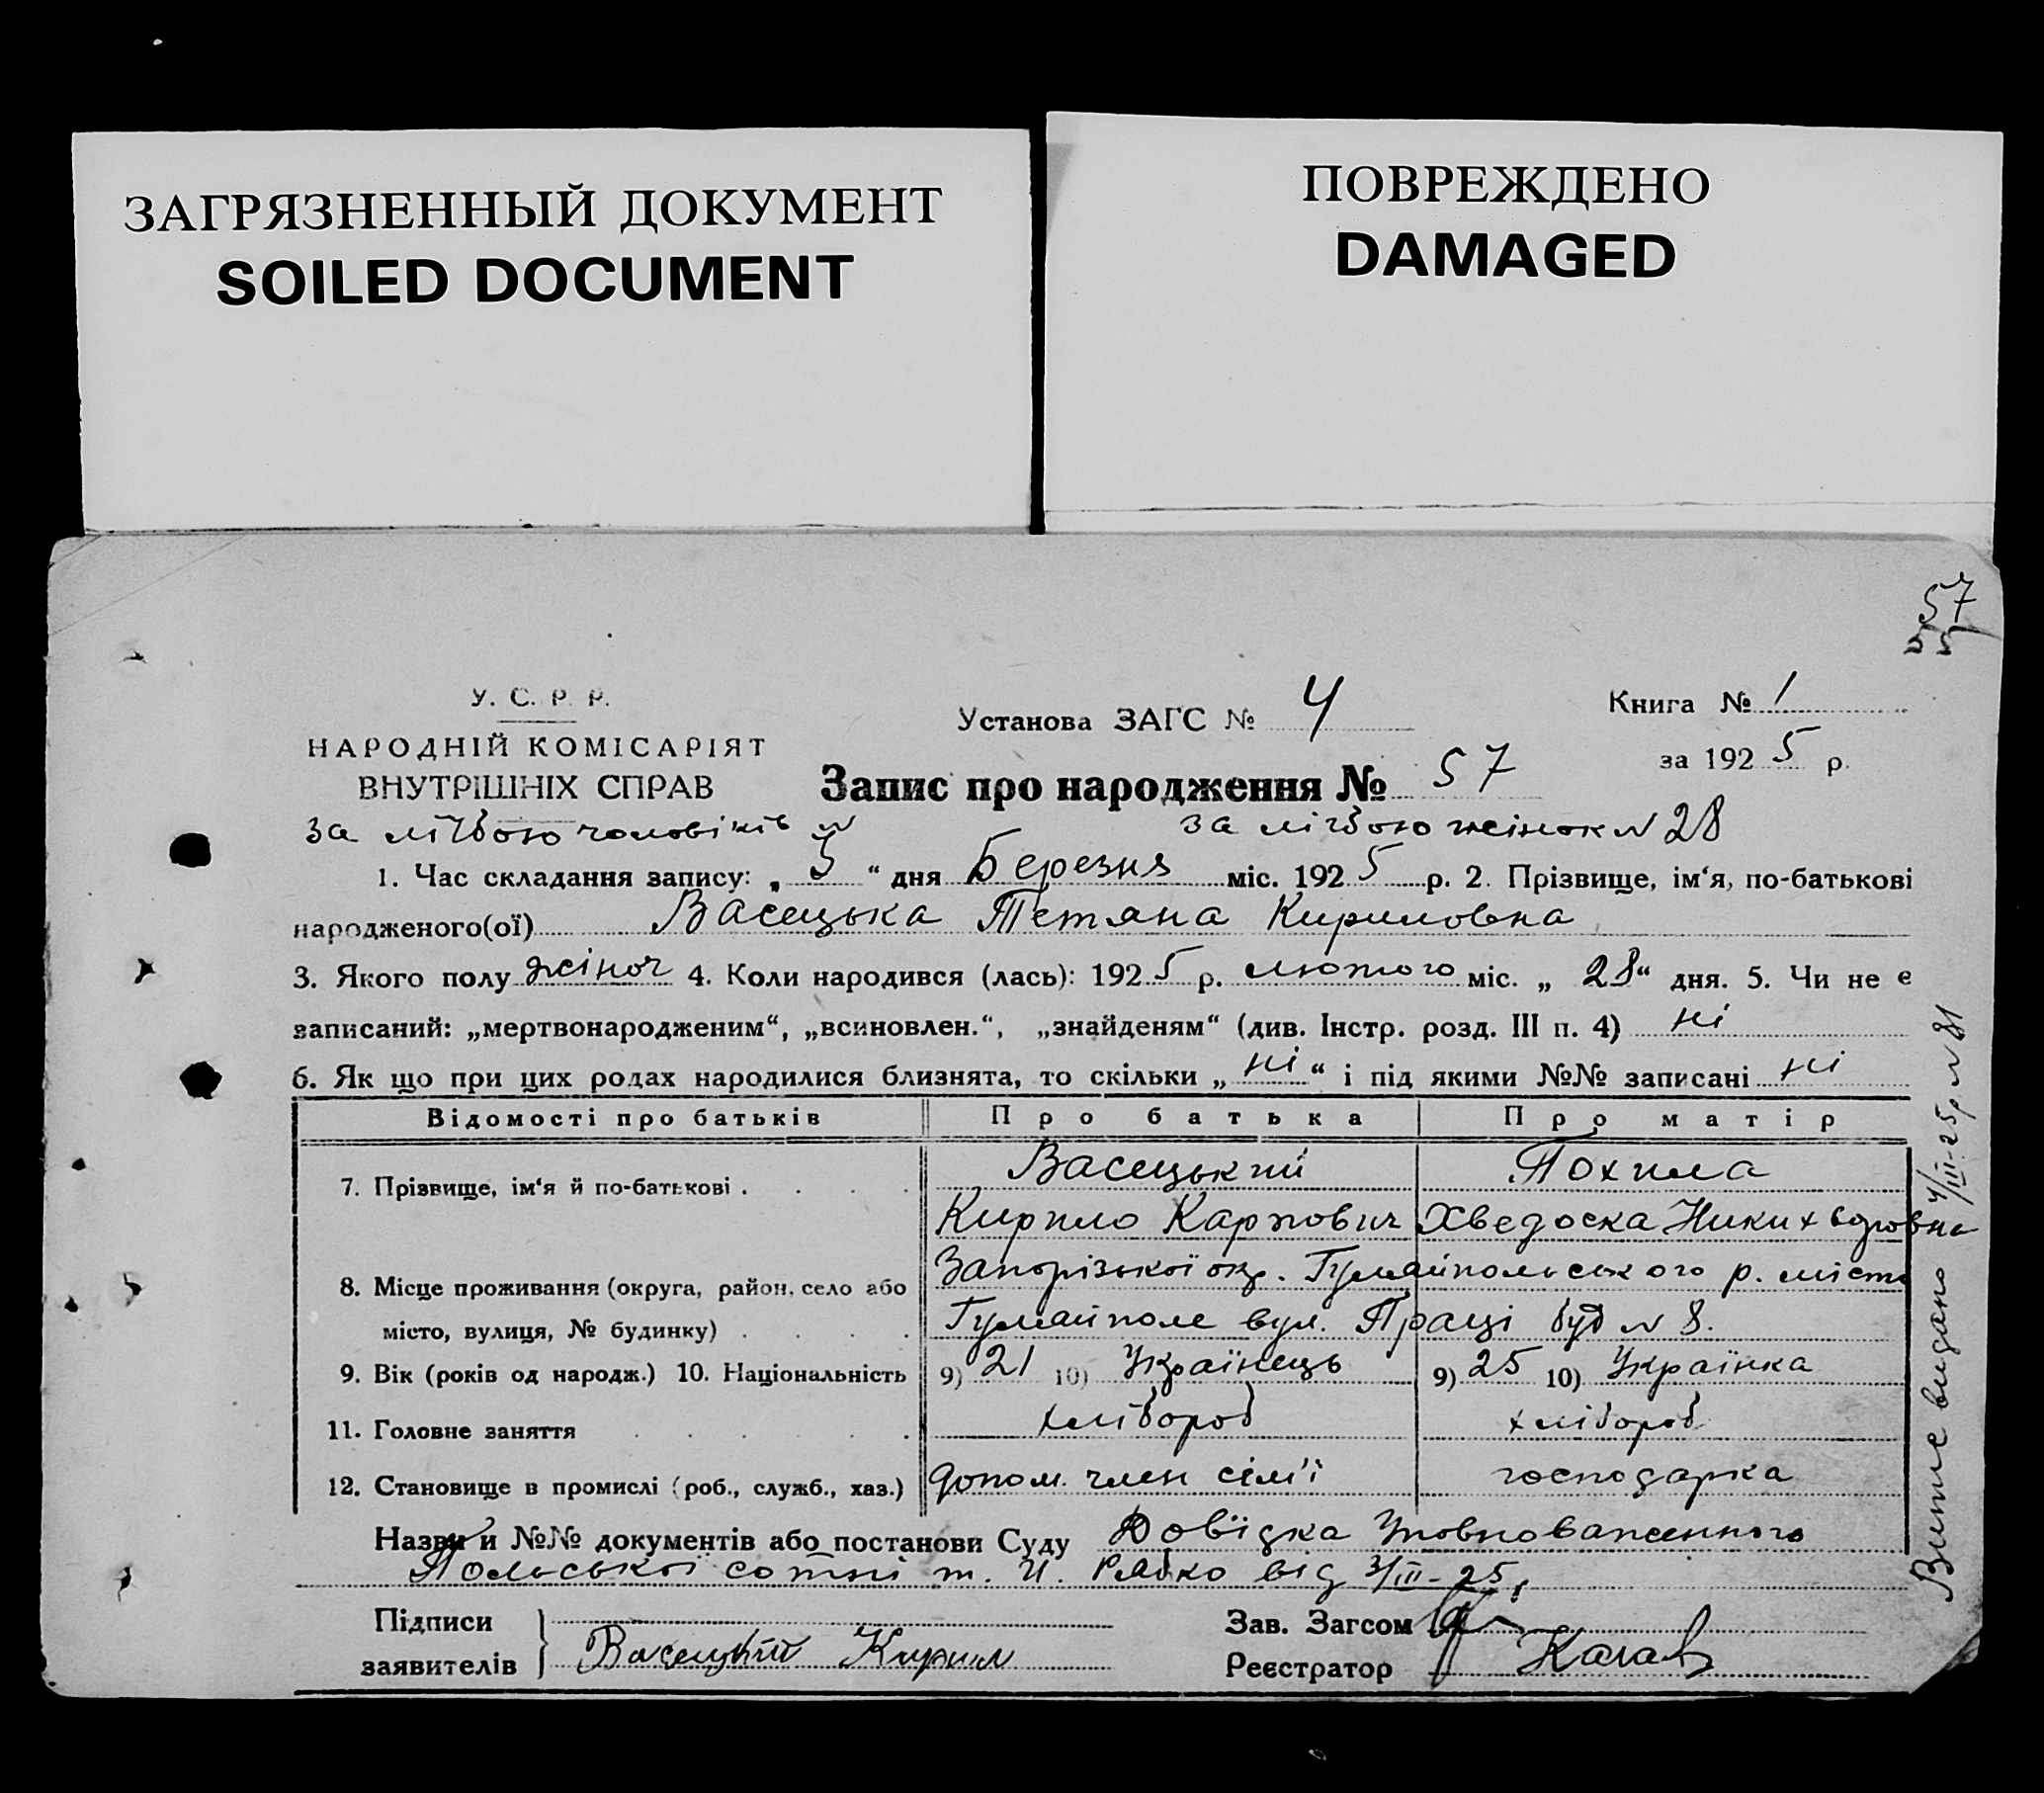 ЗАГРЯЗНЕННЫЙ ДОКУМЕНТ
SOILED DOCUMENT
ПОВРЕЖДЕНО
DAMAGED
57
У. С. Р. Р.
НАРОДНІЙ КОМІСАРІЯТ
ВНУТРІШНІХ СПРАВ
Установа ЗАГС № 4
Книга № 1
за 1925 р.
Запис про народження № 57
за лічбою чоловіків № за лічбою жінок № 28
1. Час складання запису: „ 3 “ дня Березня міс. 1925 р. 2. Прізвище, ім‘я, по-батькові
народженого(ої) Васецька Тетяна Кириловна
3. Якого полу жіноч 4. Коли народився (лась): 1925 р. лютого міс. „ 28 “ дня. 5. Чи не є
записаний: „мертвонародженим“, „всиновлен.“, „знайденям“ (див. Інстр. розд. III п. 4) ні
6. Як що при цих родах народилися близнята, то скільки „ ні “ і під якими №№ записані ні
Відомості про батьків Про батька Про матір
7. Прізвище, ім‘я й по-батькові . Васецький Похила
Кирило Карпович Хведоска
8. Місце проживання (округа, район, село або Запорізької окр. Гуляйпольського р. місто
місто, вулиця, № будинку) Гуляйполе вул. Праці буд № 8.
9. Вік (років од народж.) 10. Національність 9) 21 10) Українець 9) 25 10) Українка
11. Головне заняття хлібороб хлібороб
12. Становище в промислі (роб., служб., хаз.) допом. член сім'ї господарка
Назви и №№ документів або постанови Суду Довідка Уповноваженного
Польської сотні т. И. Рябко від 3/III-25
Підписи
заявителів Васецкий Кирил
Зав. Загсом
Реєстратор
Витяг видано 4/III-25р № 81